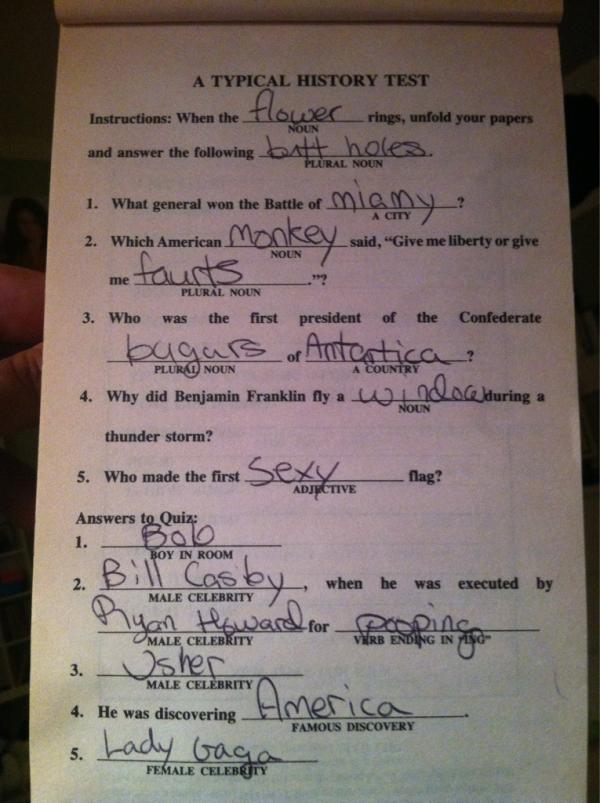 A TYPICAL HISTORY TEST
Instructions: When the flower rings, unfold your papers
NOUN
and answer the following butt holes.
PLURAL NOUN
1. What general won the Battle of miamy ?
A CITY
2. Which American Monkey said, “Give me liberty or give
NOUN
me faurts .”?
PLURAL NOUN
3. Who was the first president of the Confederate
bugars of Antartica ?
PLURAL NOUN A COUNTRY
4. Why did Benjamin Franklin fly a window during a
NOUN
thunder storm?
5. Who made the first Sexy flag?
ADJECTIVE
Answers to Quiz:
1. Bob
BOY IN ROOM
2. Bill Casby, when he was executed by
MALE CELEBRITY
Ryan Howard for pooping
MALE CELEBRITY VERB ENDING IN “ING”
3. Usher
MALE CELEBRITY
4. He was discovering America.
FAMOUS DISCOVERY
5. Lady Gaga
FEMALE CELEBRITY